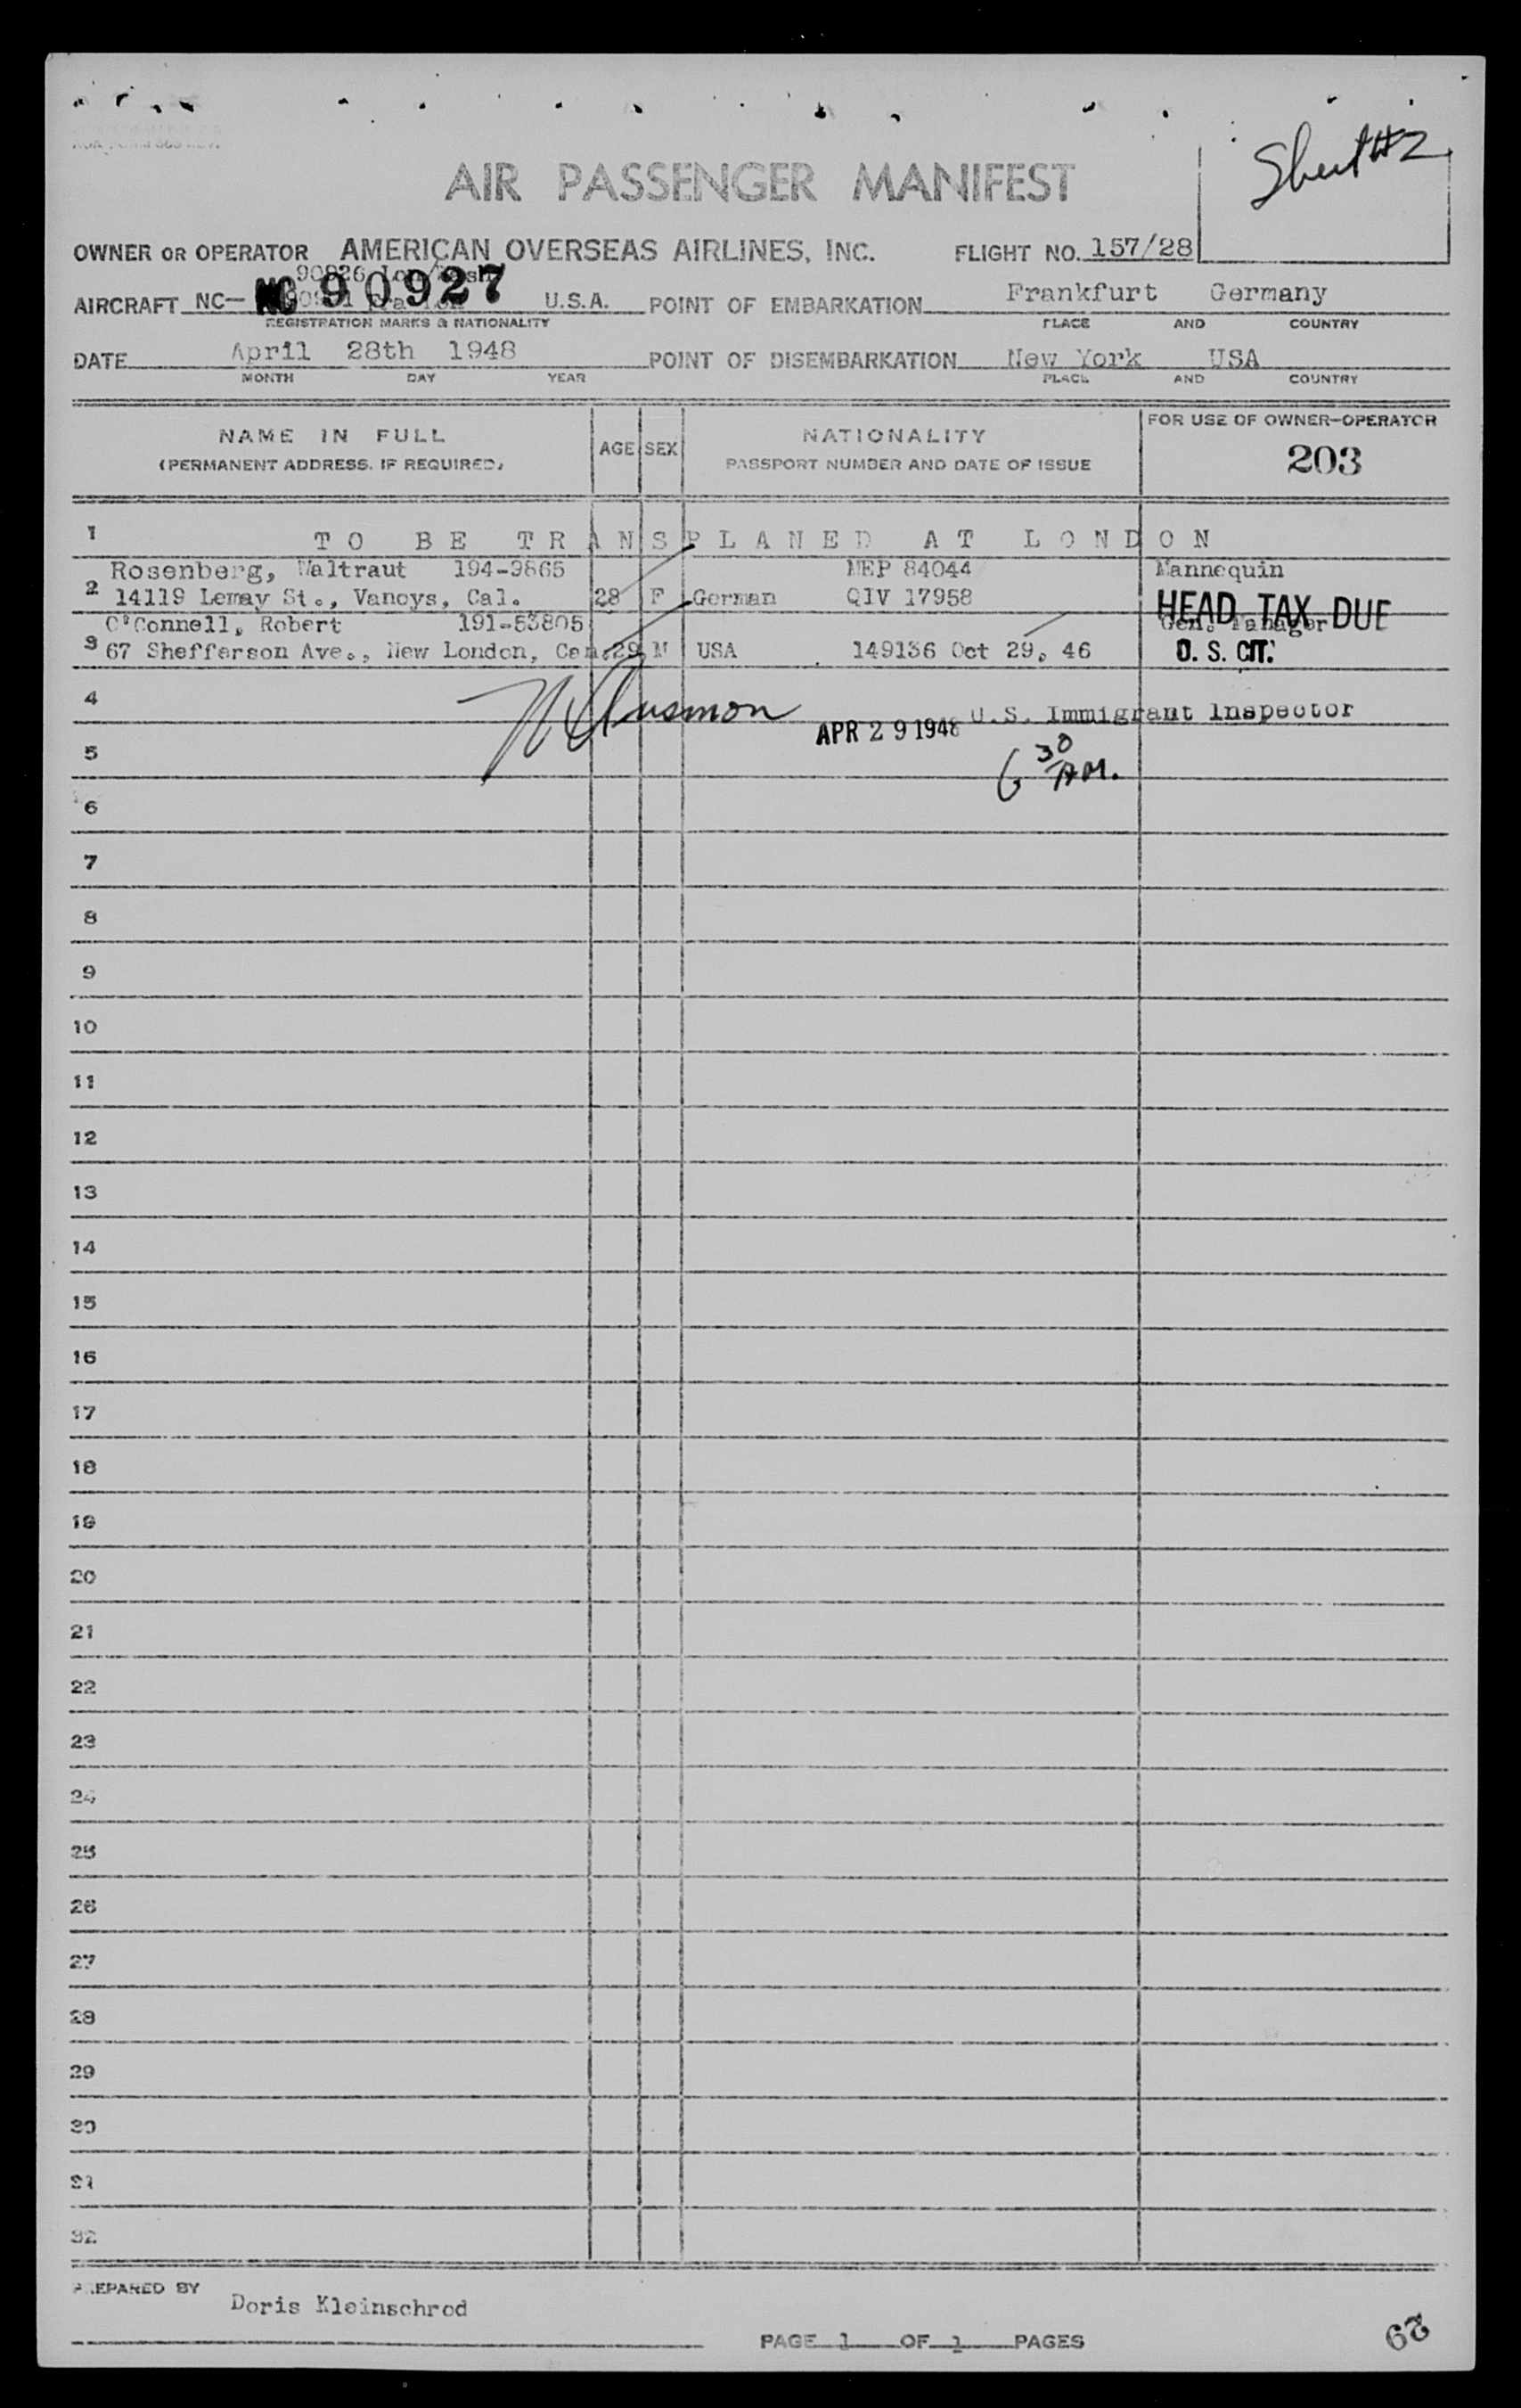 Sheet #2
AIR PASSENGER MANIFEST
OWNER OR OPERATOR AMERICAN OVERSEAS AIRLINES, INC. FLIGHT NO. 157/28
90826
AIRCRAFT NC- NC 90927 U.S.A. POINT OF EMBARKATION Frankfurt Germany
REGISTRATION MARKS & NATIONALITY PLACE AND COUNTRY
DATE April 28th 1948 POINT OF DISEMBARKATION New York USA
MONTH DAY YEAR PLACE AND COUNTRY
NAME IN FULL AGE SEX NATIONALITY FOR USE OF OWNER-OPERATOR
(PERMANENT ADDRESS, IF REQUIRED) PASSPORT NUMBER AND DATE OF ISSUE 203
1 TO BE TRANSPLANED AT LONDON
Rosenberg, Waltraut 194-9865 MEP 84044 Mannequin
2 14119 Lemay St., Vanoys, Cal. 28 F German QIV 17958 HEAD TAX DUE
O'Connell, Robert 191-53805 Gen. Manager
3 67 Shefferson Ave., New London, Con. 29 M USA 149136 Oct 29, 46 U. S. CIT.
4 U.S. Immigrant Inspector
APR 29 1948
5 6 30 AM.
6
7
8
9
10
11
12
13
14
15
16
17
18
19
20
21
22
23
24
25
26
27
28
29
30
31
32
PREPARED BY Doris Kleinschrod
PAGE 1 OF 1 PAGES
29